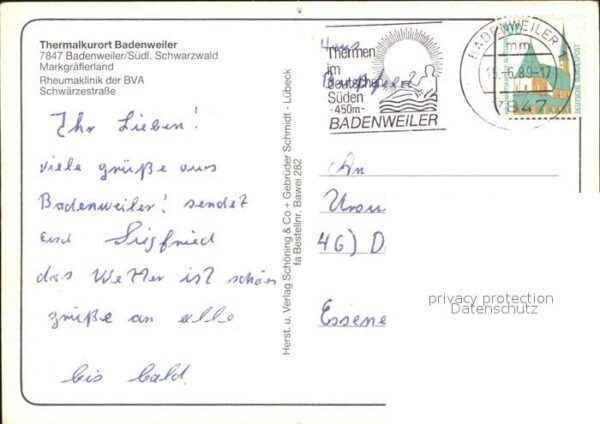 Thermalkurort Badenweiler
7847 Badenweiler/Südl. Schwarzwald
Markgräflerland
Rheumaklinik der BVA
Schwärzestraße
Ihr Lieben!
viele grüße aus
Badenweiler! sendet
Siegfried
das Wetter ist schön
grüße an alle
bis bald.
Herst. u. Verlag Schöning & Co + Gebrüder Schmidt - Lübeck
fa Bestellnr. Bawei 282
Thermen
im
deutschen
Süden
- 450m -
BADENWEILER
BADENWEILER 1
mm
15.-6.89-17
7847
DEUTSCHE BUNDESPOST
An
Ursu
46) D
Essene
privacy protection
Datenschutz